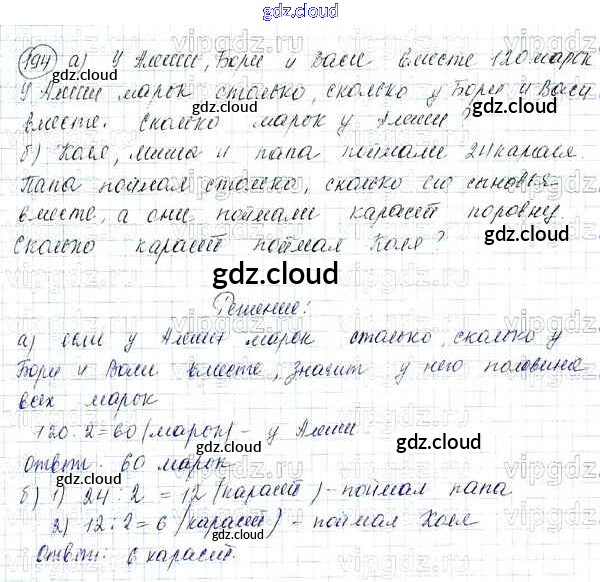 gdz.cloud
194 а) У Алеши, Бори и Васи вместе 120 марок
У Алеши марок столько, сколько у Бори и Васи
вместе. Сколько марок у Алеши?
б) Коля, Миша и папа поймали 24 карася.
Папа поймал столько, сколько его сыновья
вместе, а они поймали карасей поровну.
Сколько карасей поймал Коля?
gdz.cloud
Решение:
а) если у Алеши марок столько, сколько у
Бори и Васи вместе, значит у него половина
всех марок
120:2=60 (марок) - у Алеши
Ответ: 60 марок
б) 1) 24:2 = 12 (карасей) - поймал папа
2) 12:2=6 (карасей) - поймал Коля
Ответ: 6 карасей.